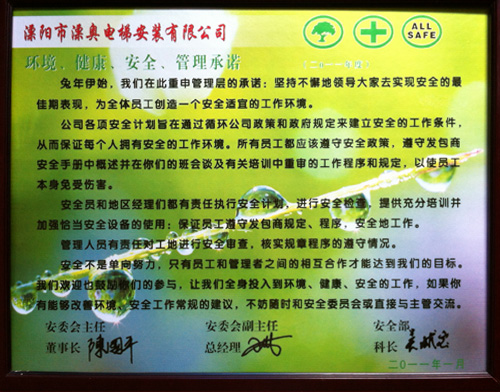 溧阳市溧奥电梯安装有限公司
ALL
SAFE
环境、健康、安全、管理承诺
(二0一一年度)
兔年伊始，我们在此重申管理层的承诺：坚持不懈地领导大家去实现安全的最
佳期表现，为全体员工创造一个安全适宜的工作环境。
公司各项安全计划旨在通过循环公司政策和政府规定来建立安全的工作条件，
从而保证每个人拥有安全的工作环境。所有员工都应该遵守安全政策，遵守发包商
安全手册中概述并在你们的班会谈及有关培训中重审的工作程序和规定，以使员工
本身免受伤害。
安全员和地区经理们都有责任执行安全计划，进行安全检查，提供充分培训并
加强恰当安全设备的使用；保证员工遵守发包商规定、程序，安全地工作。
管理人员有责任对工地进行安全审查，核实规章程序的遵守情况。
安全不是单向努力，只有员工和管理者之间的相互合作才能达到我们的目标。
我们欢迎也鼓励你们的参与，让我们全身投入到环境、健康、安全的工作，如果你
有能够改善环境、安全工作常规的建议，不妨随时和安全委员会或直接与主管交流。
安委会主任 安委会副主任 安全部
董事长 陈国平 总经理 科长
二0一一年一月